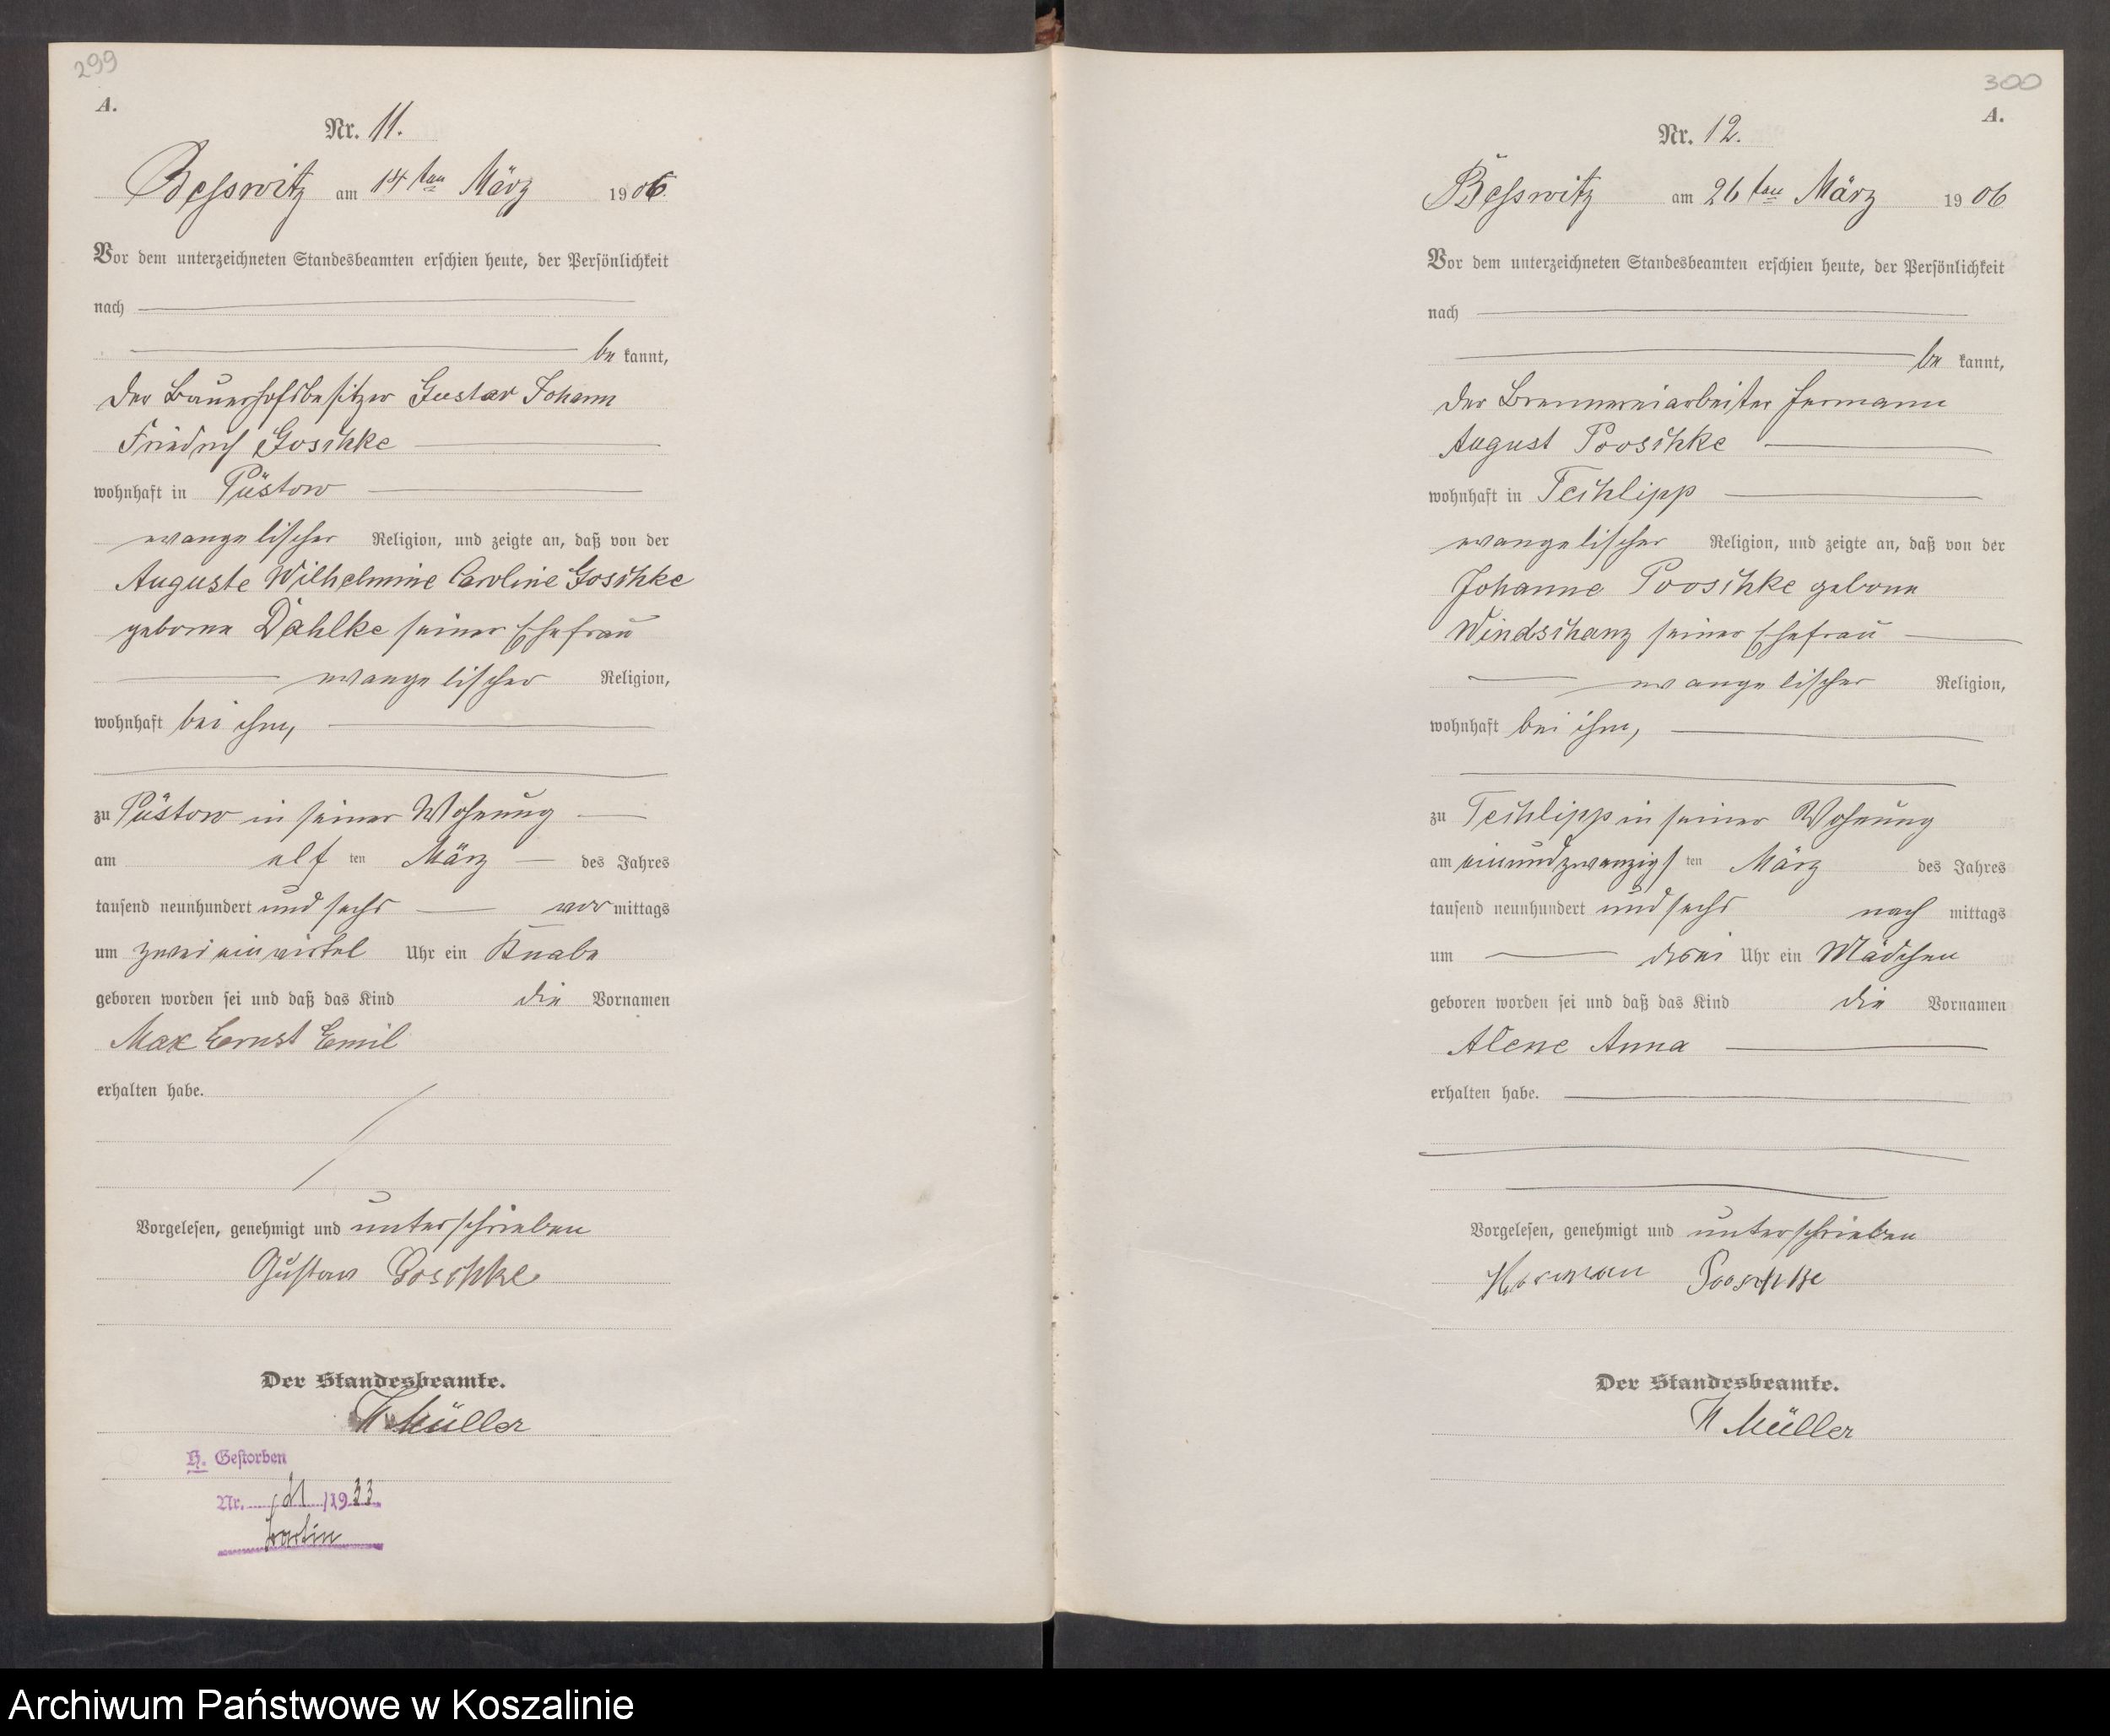 299
A.
Nr. 11.
Besswitz am 14 ten März 1906.
Vor dem unterzeichneten Standesbeamten erschien heute, der Persönlichkeit
nach
be kannt,
der Bauerhofsbesitzer Gustav Johann
Friedrich Goschke
wohnhaft in Püstow
evangelischer Religion, und zeigte an, daß von der
Auguste Wilhelmine Caroline Goschke
geborne Dahlke seiner Ehefrau
evangelischer Religion,
wohnhaft bei ihm,
zu Püstow in seiner Wohnung
am elf ten März des Jahres
tausend neunhundert und sechs vor mittags
um zwei ein viertel Uhr ein Knabe
geboren worden sei und daß das Kind die Vornamen
Max Ernst Emil
erhalten habe.
Vorgelesen, genehmigt und unterschrieben
Gustav Goschke
Der Standesbeamte.
Müller
H. Gestorben
Nr. /1933
300
A.
Nr. 12.
Besswitz am 26 ten März 1906
Vor dem unterzeichneten Standesbeamten erschien heute, der Persönlichkeit
nach
be kannt,
der Brennereiarbeiter Hermann
August Pooschke
wohnhaft in Techlipp
evangelischer Religion, und zeigte an, daß von der
Johanne Pooschke geborne
Windschanz seiner Ehefrau
evangelischer Religion,
wohnhaft bei ihm,
zu Techlipp in seiner Wohnung
am einundzwanzigs ten März des Jahres
tausend neunhundert und sechs nach mittags
um drei Uhr ein Mädchen
geboren worden sei und daß das Kind die Vornamen
Alene Anna
erhalten habe.
Vorgelesen, genehmigt und unterschrieben
Herman Pooschke
Der Standesbeamte.
Müller
Archiwum Państwowe w Koszalinie